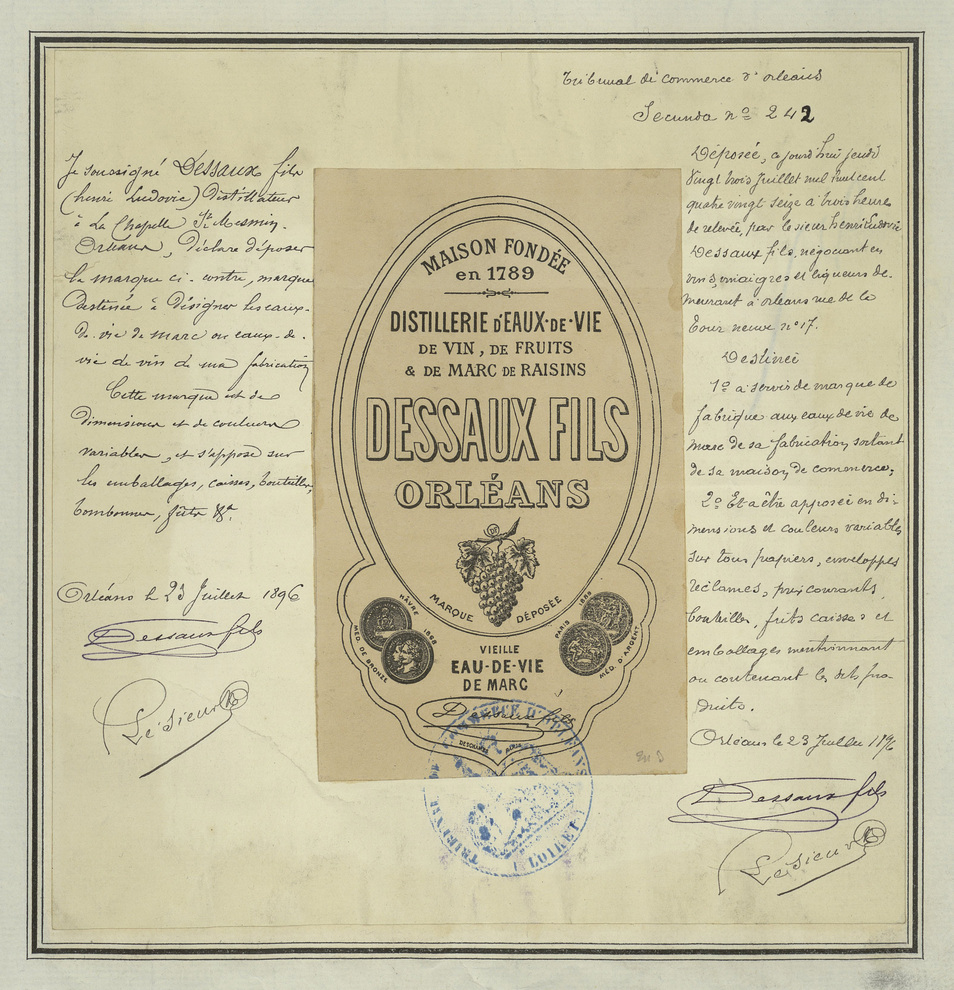 Tribunal de commerce d'orléans
Secunda nº 242
Je soussigné Dessaux fils
(henri Ludovic) Distillateur
à La Chapelle St Mesmin,
Orléans, Déclare déposer
la marque ci-contre, marque
destinée à désigner les eaux-
de-vie de marc ou eaux-de-
vie de vin de ma fabrication
Cette marque est de
dimensions et de couleurs
variables, et s'appose sur
les emballages, caisses, bouteilles,
bonbonnes, fûts &a.
Orléans le 23 Juillet 1896
Dessaux fils
Lesieur
MAISON FONDÉE
en 1789
DISTILLERIE D'EAUX-DE-VIE
DE VIN, DE FRUITS
& DE MARC DE RAISINS
DESSAUX FILS
ORLÉANS
DF
MARQUE DÉPOSÉE
HÂVRE 1868
MÉD. DE BRONZE
PARIS 1889
MÉD. D'ARGENT
VIEILLE
EAU-DE-VIE
DE MARC
Dessaux fils
TRIBUNAL DE COMMERCE D'ORLÉANS
LOIRET
Déposée, aujourd'hui jeudi
Vingt trois Juillet mil huit cent
quatre vingt seize à trois heures
de relevée, par le sieur henri Ludovic
Dessaux fils, négociant en
vins, vinaigres et liqueurs de-
meurant à orléans rue de la
Tour neuve nº 17.
Destinée
1º a servir de marque de
fabrique aux eaux de vie de
marc de sa fabrication, sortant
de sa maison de commerce;
2º Et a être apposée en di-
mensions et couleurs variables
sur tous papiers, enveloppes
réclames, prix courants,
bouteilles, fûts caisses et
emballages mentionnant
ou contenant les dits pro-
duits.
Orléans le 23 Juillet 1896
Dessaux fils
Lesieur